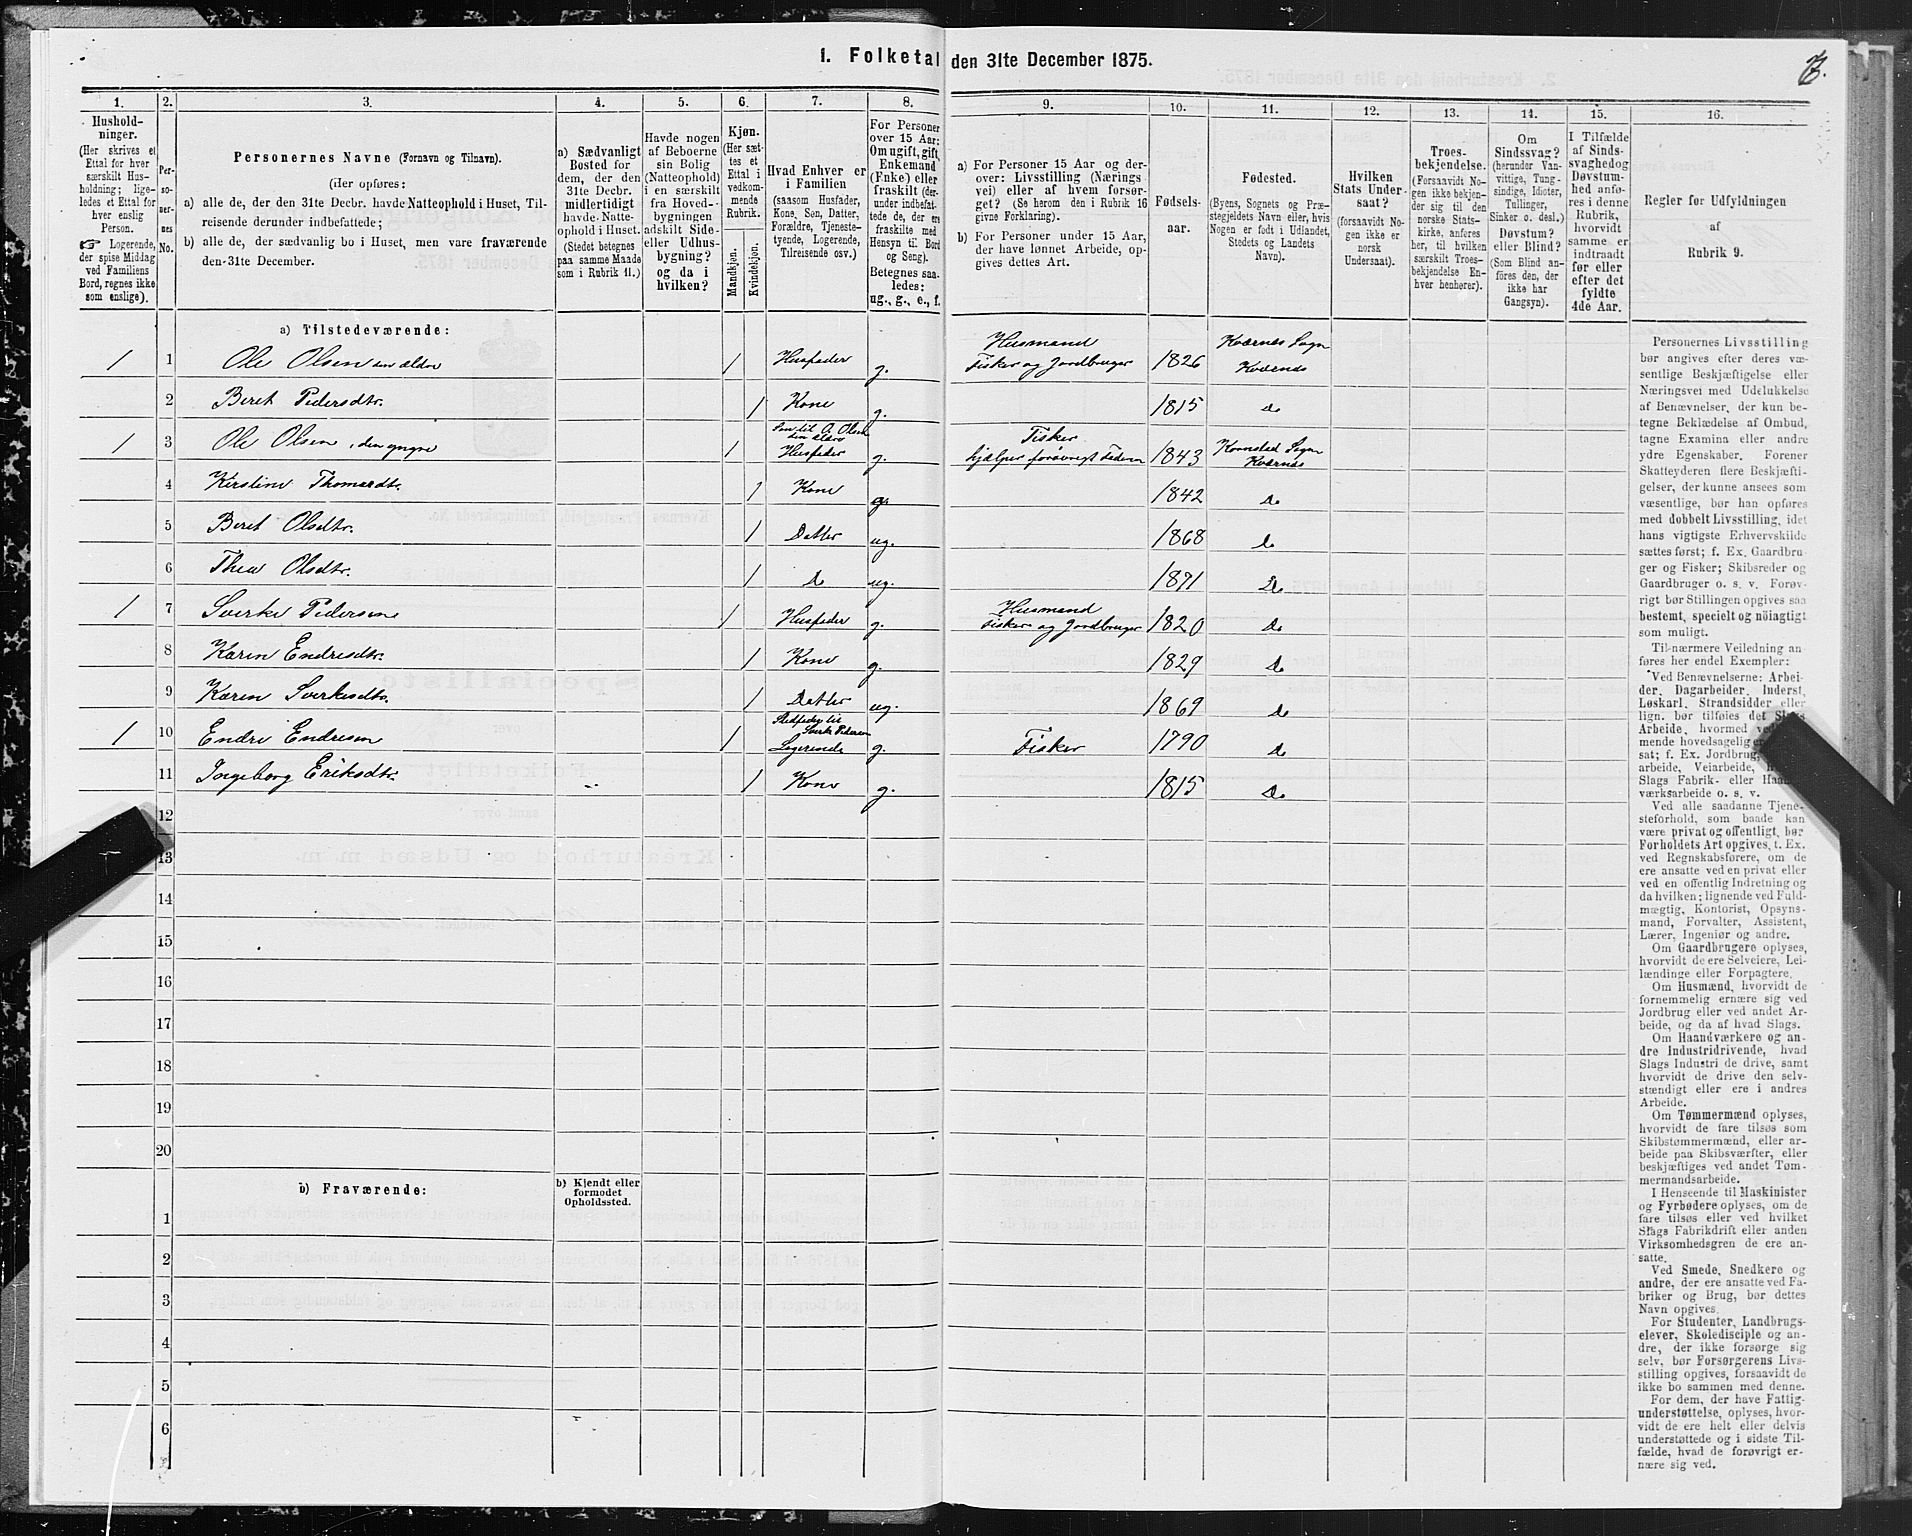 1. Folketal den 31te December 1875.
1.
2.
3.
4.
5.
6.
7.
8.
9.
10.
11.
12.
13.
14.
15.
16.
Hushold-
ninger.
(Her skrives et
Ettal for hver
særskilt Hus-
holdning; lige-
ledes et Ettal for
hver enslig
Person.
☞ Logerende,
der spise Middag
ved Familiens
Bord, regnes ikke
som enslige).
Per-
so-
ner-
nes
No.
Personernes Navne (Fornavn og Tilnavn).
(Her opføres:
a) alle de, der den 31te Decbr. havde Natteophold i Huset, Til-
reisende derunder indbefattede;
b) alle de, der sædvanlig bo i Huset, men vare fraværende
den 31te December.
a) Sædvanligt
Bosted for
dem, der den
31te Decbr.
midlertidigt
havde Natte-
ophold i Huset.
(Stedet betegnes
paa samme Maade
som i Rubrik 11.)
Havde nogen
af Beboerne
sin Bolig
(Natteophold)
i en særskilt
fra Hoved-
bygningen
adskilt Side-
eller Udhus-
bygning?
og da i
hvilken?
Kjøn.
(Her sæt-
tes et
Ettal i
vedkom-
mende
Rubrik.
Mandkjøn.
Kvindekjøn.
Hvad Enhver er
i Familien
(saasom Husfader,
Kone, Søn, Datter,
Forældre, Tjeneste-
tyende, Logerende,
Tilreisende osv.)
For Personer
over 15 Aar:
Om ugift, gift,
Enkemand
(Enke) eller
fraskilt (der-
under indbefat-
tede de, der er
fraskilte med
Hensyn til Bord
og Seng).
Betegnes saa-
ledes:
ug., g., e., f.
a) For Personer 15 Aar og der-
over: Livsstilling (Nærings
vei) eller af hvem forsør-
get? (Se herom den i Rubrik 16
givne Forklaring).
b) For Personer under 15 Aar,
der have lønnet Arbeide, op-
gives dettes Art.
Fødsels-
aar.
Fødested.
(Byens, Sognets og Præ-
stegjeldets Navn eller, hvis
Nogen er født i Udlandet,
Stedets og Landets
Navn).
Hvilken
Stats Under-
saat?
(forsaavidt No-
gen ikke er
norsk
Undersaat).
Troes-
bekjendelse.
(Forsaavidt No-
gen ikke bekjen-
der sig til den
norske Stats-
kirke, anføres
her, til hvilken
særskilt Troes-
bekjendelse En-
hver henhører).
Om
Sindssvag?
(herunder Van-
vittige, Tung-
sindige, Idioter,
Tullinger,
Sinker o. desl.)
Døvstum?
eller Blind?
(Som Blind an-
føres den, der
ikke har
Gangsyn).
I Tilfælde
af Sinds-
svaghed og
Døvstum-
hed anfø-
res i denne
Rubrik,
hvorvidt
samme er
indtraadt
før eller
efter det
fyldte
4de Aar.
Regler for Udfyldningen
af
Rubrik 9.
a) Tilstedeværende:
1 1 Ole Olsen den ældre 1 Husfader g. Husmand Fisker og Jordbruger 1826 Kværnes Sogn Kværnes
2 Beret Pedersdtr. 1 Kone g. 1815 Do
1 3 Ole Olsen, den yngre 1 Søn til O. Olsen den ældre Husfader g. Fisker hjælper forøvrigt Faderen 1843 Kornstad Sogn Kværnes
4 Kirstine Thomasdtr. 1 Kone g. 1842 Do
5 Beret Olsdtr. 1 Datter ug. 1868 Do
6 Thea Olsdtr. 1 Do ug. 1871 Do
1 7 Sverke Pedersen 1 Husfader g. Husmand Fisker og Jordbruger 1820 Do
8 Karen Endresdtr. 1 Kone g. 1829 Do
9 Karen Sverkesdtr. 1 Datter ug. 1869 Do
1 10 Endre Endresen 1 Stedfader til Sverke Pedersen Logerende g. Fisker 1790 Do
11 Ingeborg Eriksdtr. 1 Kone g. 1815 Do
12
13
14
15
16
17
18
19
20
b) Fraværende:
b) Kjendt eller
formodet
Opholdssted.
1
2
3
4
5
6
Personernes Livsstilling
bør angives efter deres væ-
sentlige Beskjæftigelse eller
Næringsvei med Udelukkelse
af Benævnelser, der kun be-
tegne Beklædelse af Ombud,
tagne Examina eller andre
ydre Egenskaber. Forener
Skatteyderen flere Beskjæfti-
gelser, der kunne ansees som
væsentlige, bør han opføres
med dobbelt Livsstilling, idet
hans vigtigste Erhvervskilde
sættes først; f. Ex. Gaardbru-
ger og Fisker; Skibsreder og
Gaardbruger o. s. v. Forøv-
rigt bør Stillingen opgives saa
bestemt, specielt og nöiagtigt
som muligt.
Til nærmere Veiledning an-
føres her endel Exempler:
Ved Benævnelserne: Arbei-
der, Dagarbeider, Inderst,
Løskarl, Strandsidder eller
lign. bør tilføies det Slags
Arbeide, hvormed
mende hovedsagelig
sat; f. Ex. Jordbrug,
arbeide, Veiarbeide,
Slags Fabrik- eller
værksarbeide o. s. v.
Ved alle saadanne Tjene-
steforhold, som baade kan
være privat og offentligt, bør
Forholdets Art opgives, t. Ex.
ved Regnskabsførere, om de
ere ansatte ved en privat eller
ved en offentlig Indretning og
da hvilken; lignende ved Fuld-
mægtig, Kontorist, Opsyns-
mand, Forvalter, Assistent,
Lærer, Ingeniør og andre.
Om Gaardbrugere oplyses,
hvorvidt de ere Selveiere, Lei-
lændinge eller Forpagtere.
Om Husmænd, hvorvidt de
fornemmelig ernære sig ved
Jordbrug eller ved andet Ar-
beide, og da af hvad Slags.
Om Haandværkere og an-
dre Industridrivende, hvad
Slags Industri de drive, samt
hvorvidt de drive den selv-
stændigt eller ere i andres
Arbeide.
Om Tømmermænd oplyses,
hvorvidt de fare tilsøs som
Skibstømmermænd, eller ar-
beide paa Skibsværfter, eller
beskjæftiges ved andet Tøm-
mermandsarbeide.
I Henseende til Maskinister
og Fyrbødere oplyses, om de
fare tilsøs eller ved hvilket
Slags Fabrikdrift eller anden
Virksomhedsgren de ere an-
satte.
Ved Smede, Snedkere og
andre, der ere ansatte ved Fa-
briker og Brug, bør dettes
Navn opgives.
For Studenter, Landbrugs-
elever, Skoledisciple og an-
dre, der ikke forsørge sig
selv, bør Forsørgerens Livs-
stilling opgives, forsaavidt de
ikke bo sammen med denne.
For dem, der have Fattig-
understøttelse, oplyses, hvor-
vidt de ere helt eller delvis
understøttede og i sidste Til-
fælde, hvad de forøvrigt er-
nære sig ved.